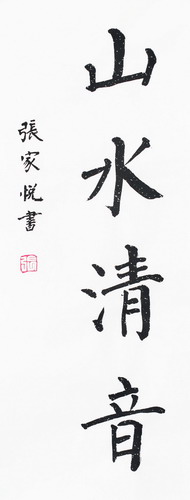 山水清音
張家悦書